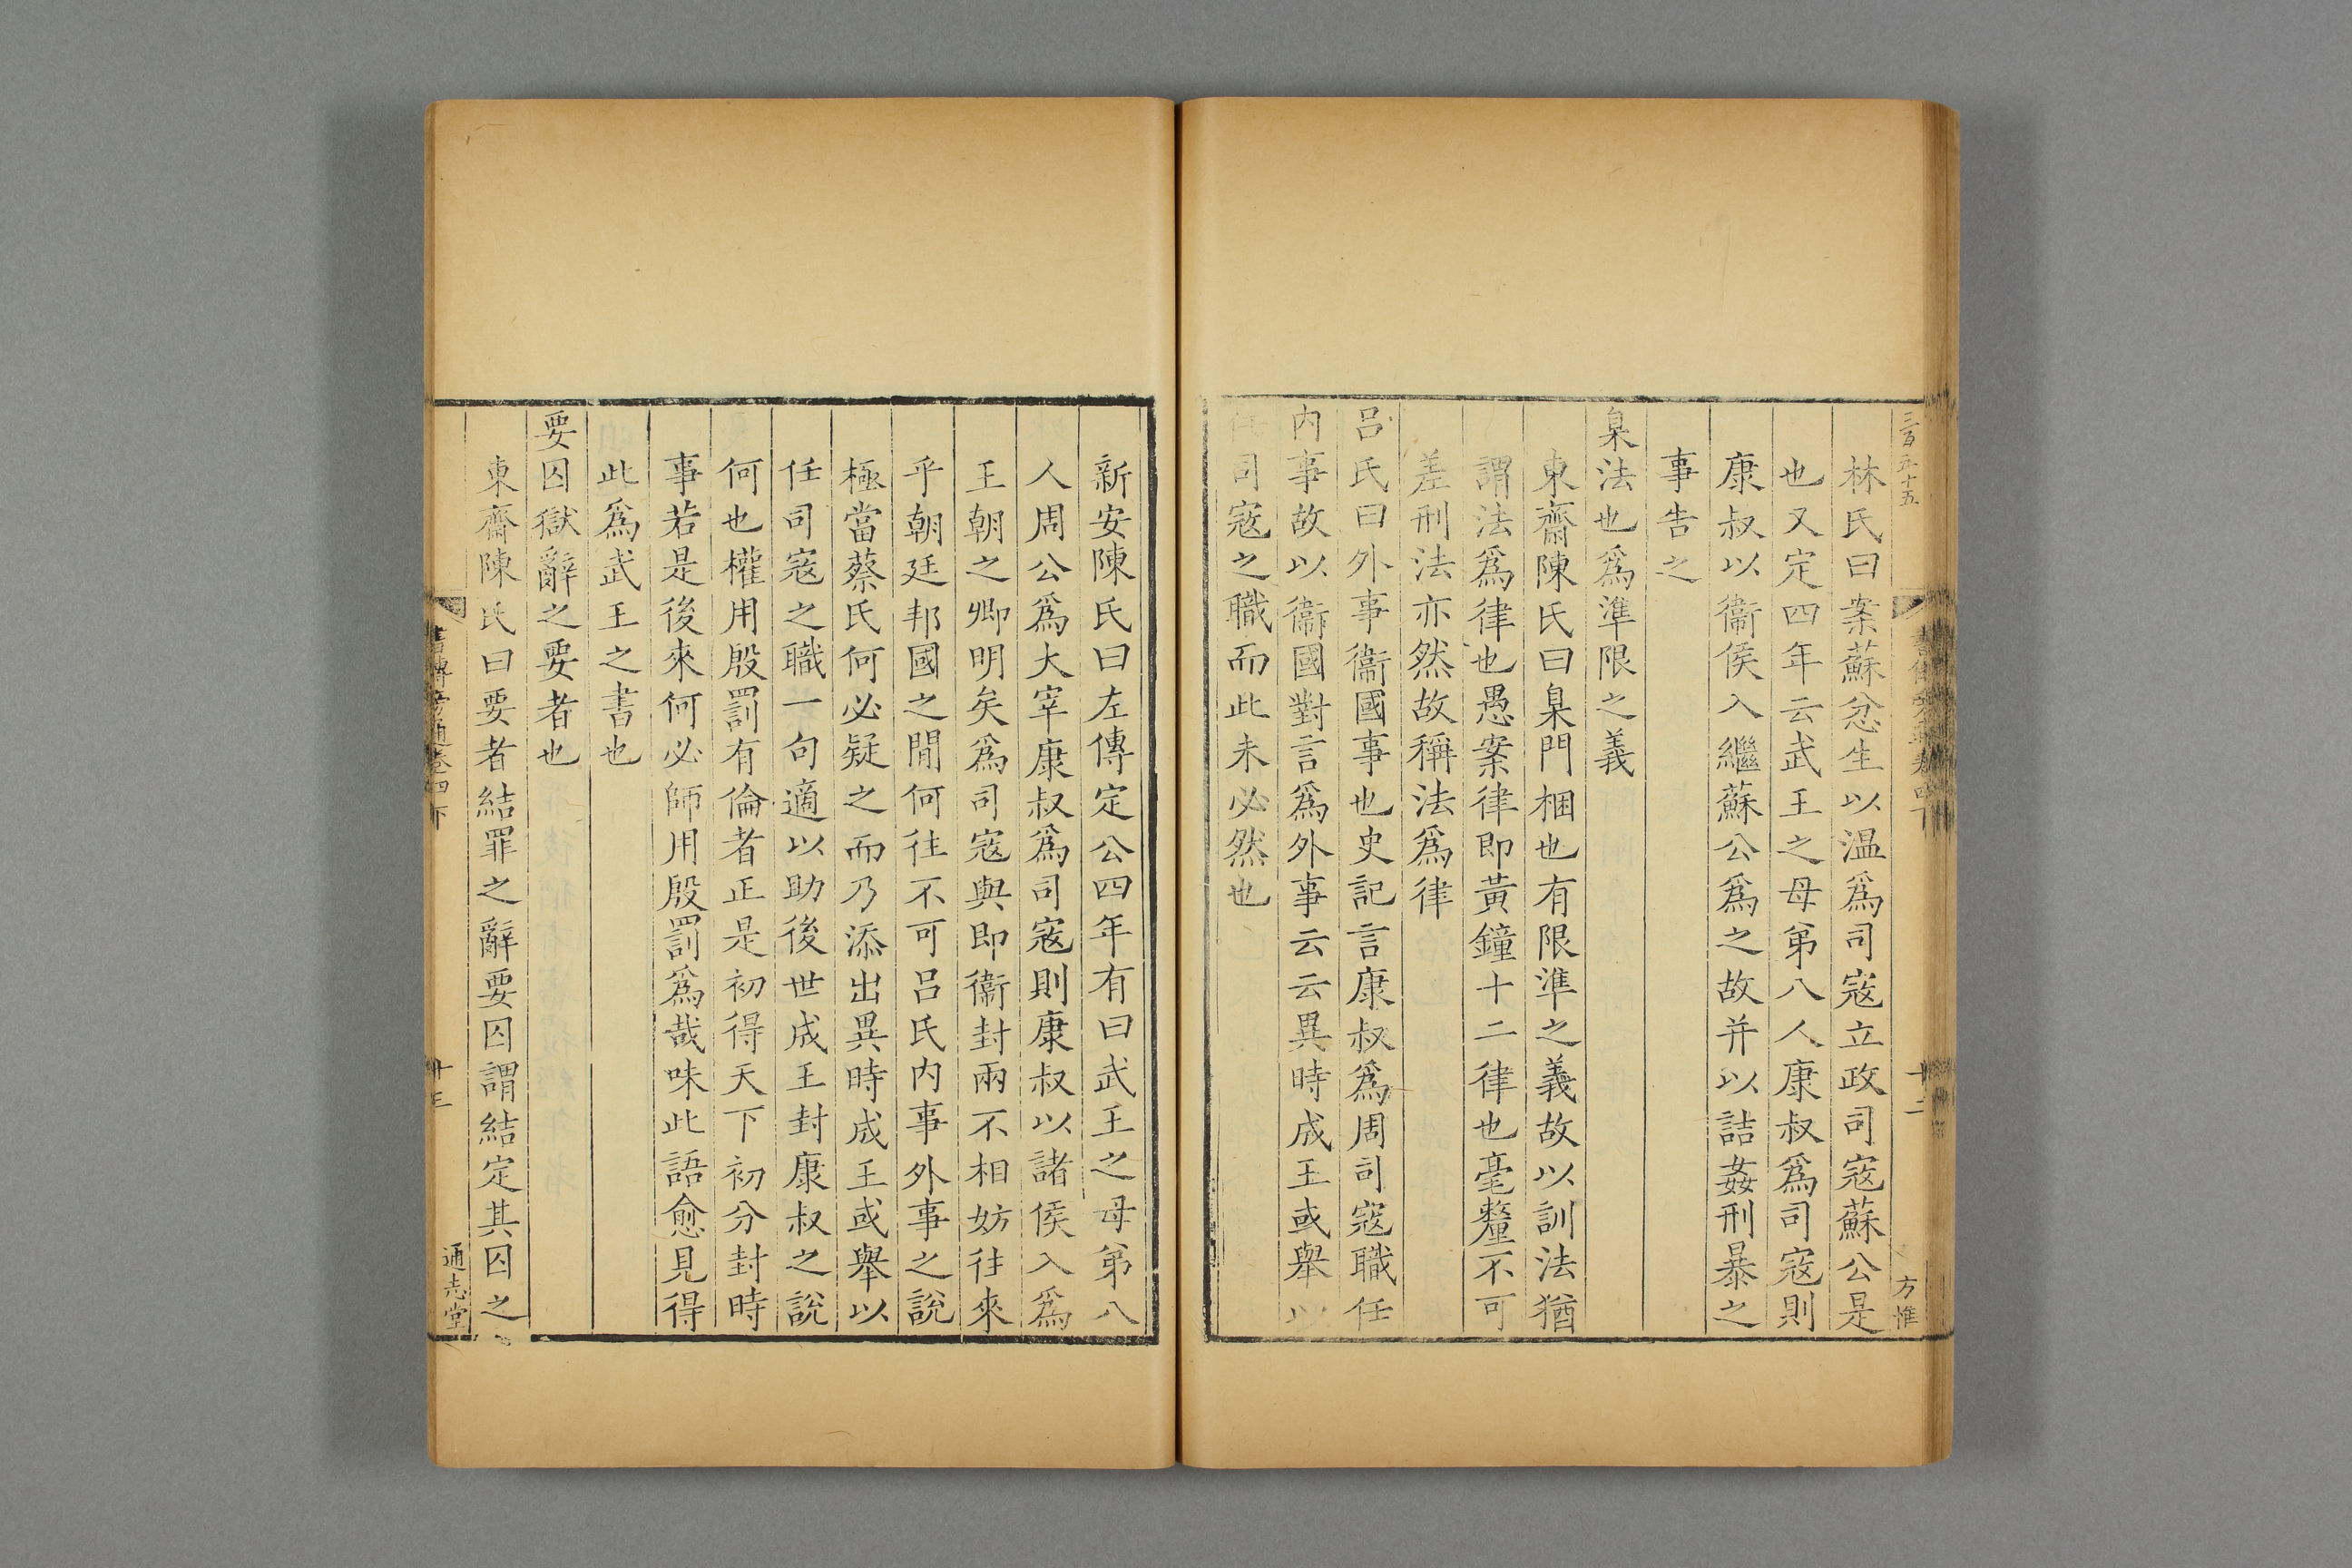 三百五十五
方惟
林氏曰案蘇忿生以温爲司寇立政司寇蘇公是
也又定四年云武王之母弟八人康叔爲司寇則
康叔以衞侯入繼蘇公爲之故并以詰姦刑暴之
事告之
臬法也爲準限之義
東齋陳氏曰臬門梱也有限準之義故以訓法猶
謂法爲律也愚案律即黃鐘十二律也毫釐不可
差刑法亦然故稱法爲律
呂氏曰外事衞國事也史記言康叔爲周司寇職任
内事故以衞國對言爲外事云云異時成王或舉以
任司寇之職而此未必然也
新安陳氏曰左傳定公四年有曰武王之母弟八
人周公爲大宰康叔爲司寇則康叔以諸侯入爲
王朝之卿明矣爲司寇與即衞封兩不相妨往來
乎朝廷邦國之閒何往不可呂氏内事外事之說
極當蔡氏何必疑之而乃添出異時成王或舉以
任司寇之職一句適以助後世成王封康叔之說
何也權用殷罰有倫者正是初得天下初分封時
事若是後來何必師用殷罰爲哉味此語愈見得
此爲武王之書也
要囚獄辭之要者也
東齋陳氏曰要者結罪之辭要囚謂結定其囚之
書傳旁通卷四下
十三
通志堂